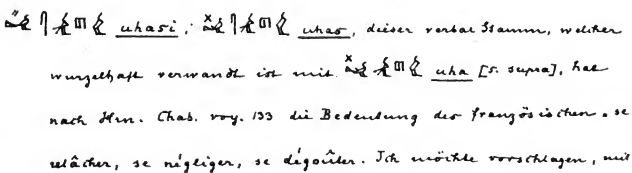 uhasi; uhas, dieser verbal Stamm, welcher
wurzelhaft verwandt ist mit uha [s. supra], hat
nach Hrn. Chab. voy. 133 die Bedeutung des französischen. se
relâcher, se négliger, se dégoûter. Ich möchte vorschlagen, mit